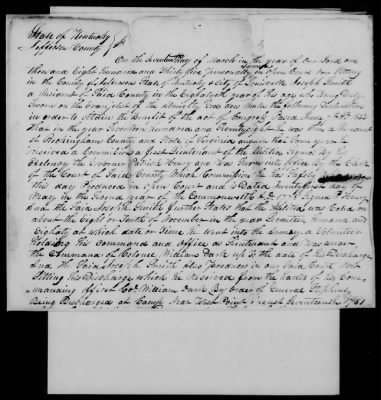 State of Kentucky
Jefferson County
On the Seventeenth day of March in the year of our Lord one
thousand and Eight hundred and thirty five Personally in Open Court now Sitting
in the County of Jefferson State of Kentucky & City of Louisville Joseph Smith
a Resident of Said County in the Eightieth year of his age who being Duly
Sworn on the Evangelist of the almighty God doth make the following Declaration
in order to obtain the benefit of the act of Congress Passed June 7th 1832
that in the year Seventeen hundred and Seventy eight he was then a Resident
of Rockingham County and State of Virginia and in that same year he
received a Commission as first Lieutenant of the Militia Signed By his
Excellency the Governor Patrick Henry and was Sworn into office By the Clerk
of the Court of Said County Which Commission he has Safely
this day Produced in Open Court and is Dated
May in the Second year of the Commonwealth A.D. 1778 Signed P. Henry
and the said Joseph Smith further States that the Militia was Called on
about the Eight or Tenth of November in the year Seventeen hundred and
Eighty at which date or time he went into the army a Volunteer
Holding his command and office as Lieutenant and was under
the Command of Colonel William Dark up to the date of his Discharge
and the Said Joseph Smith also Produces in our Said Court now
Sitting his Discharge which he Received from the hands of his Com-
manding officer Col William Dark By order of General Stephens
Being Discharged at Camp Near West Point Seventeenth 1781